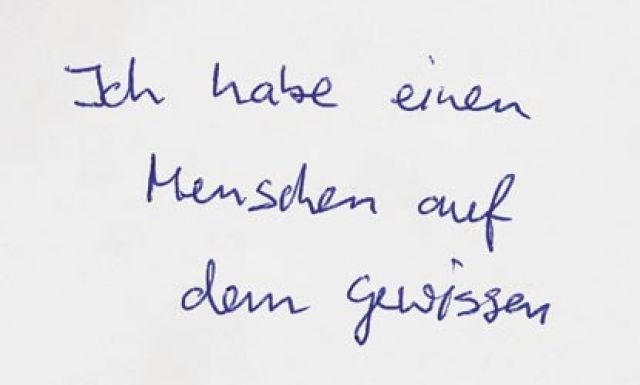 Ich habe einen
Menschen auf
dem Gewissen